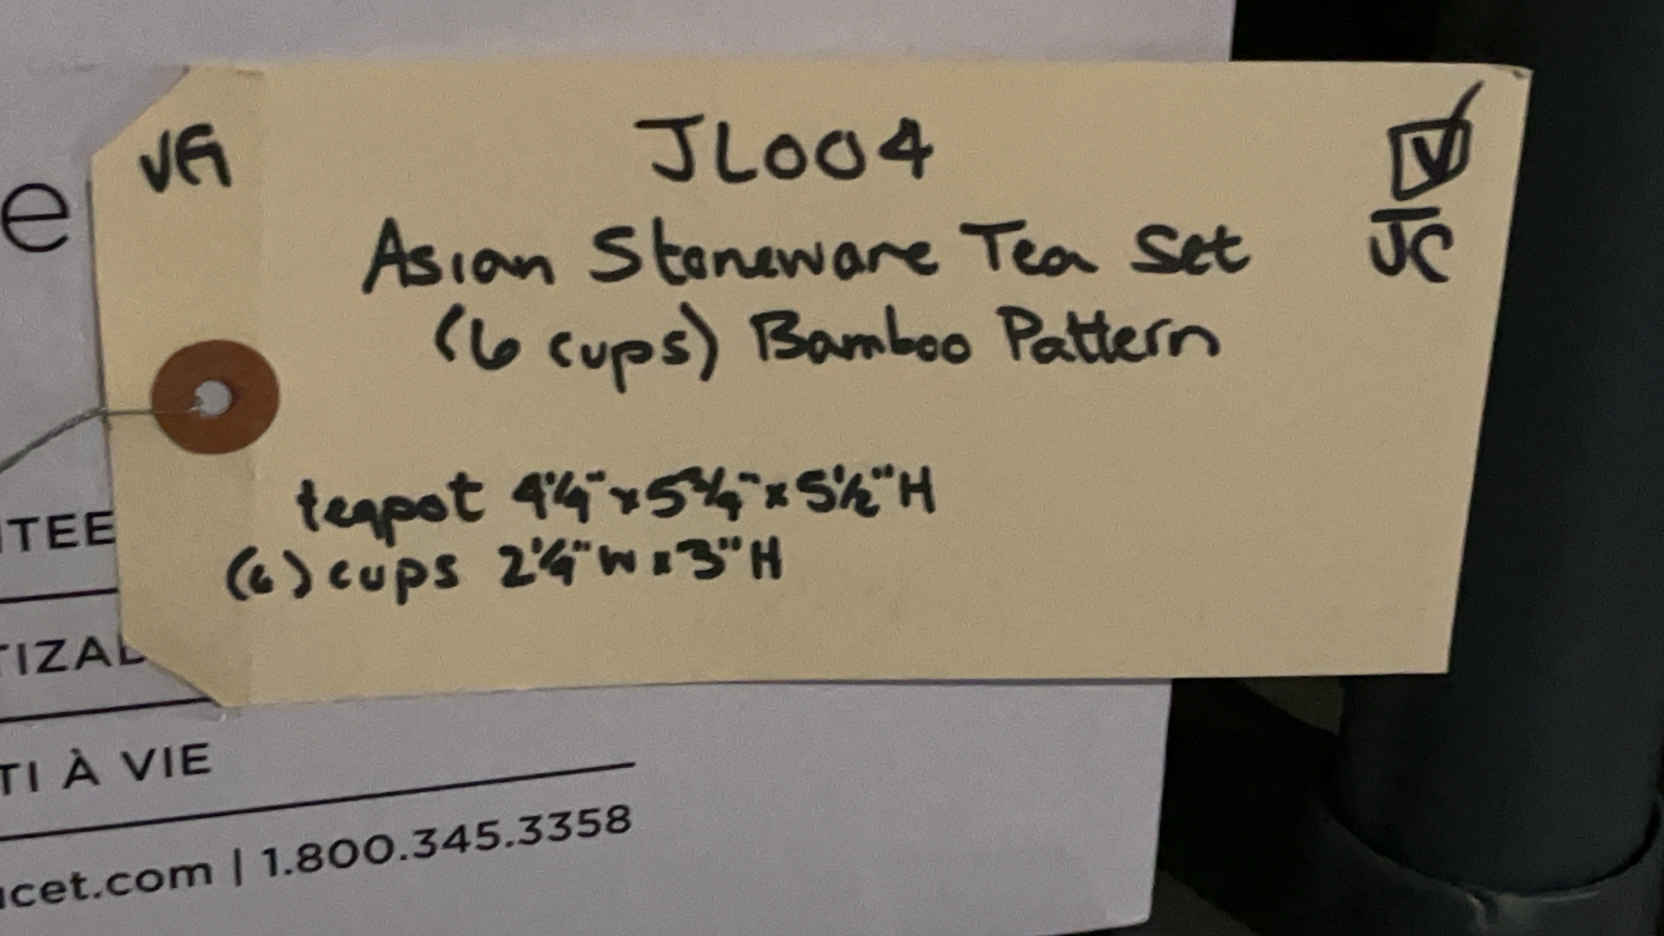 VG
JL004
V
JC
Asian Stoneware Tea Set
(6 cups) Bamboo Pattern
teapot 4 1/4" x 5 3/4" x 5 1/2" H
(6) cups 2 1/4" W x 3" H
e
TEE
TIZAL
TI À VIE
cet.com | 1.800.345.3358